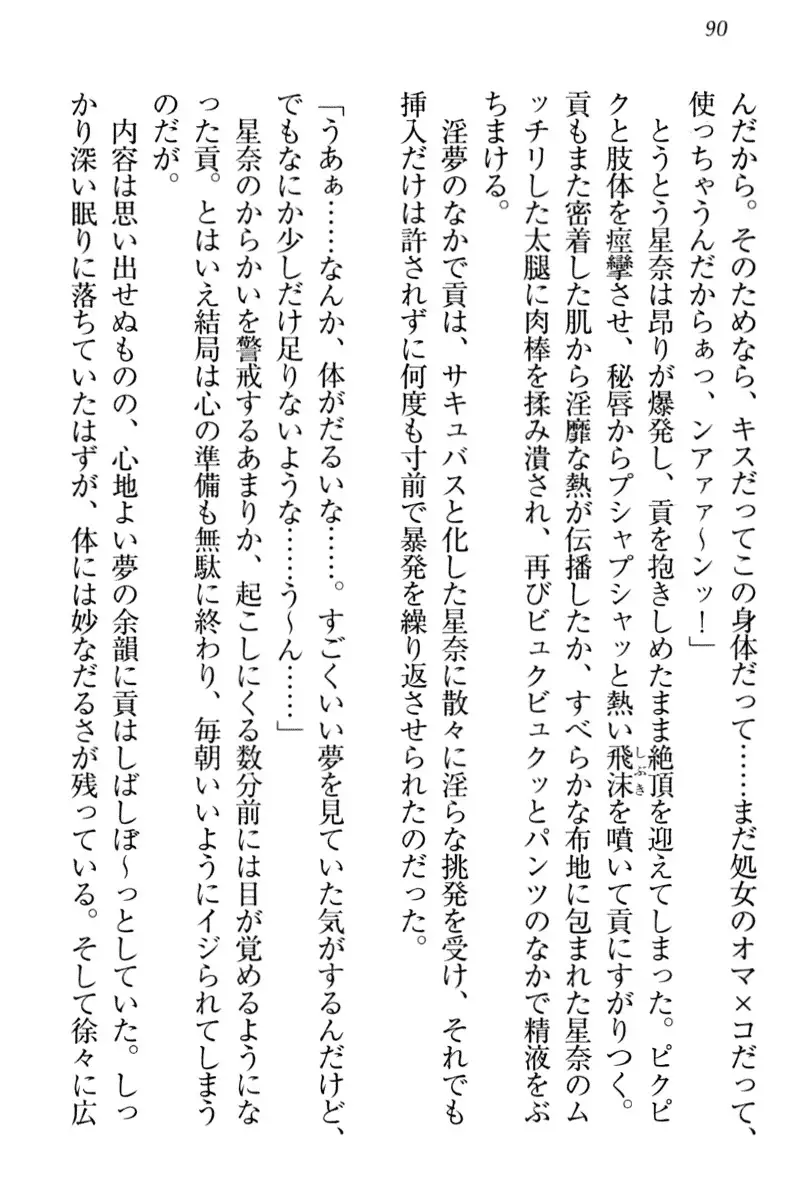 90
んだから。そのためなら、キスだってこの身体だって……まだ処女のオマ×コだって、
使っちゃうんだからぁっ、ンアァァ～ンッ！」
とうとう星奈は昂りが爆発し、貢を抱きしめたまま絶頂を迎えてしまった。ピクピ
クと肢体を痙攣させ、秘唇からプシャプシャッと熱い飛沫しぶきを噴いて貢にすがりつく。
貢もまた密着した肌から淫靡な熱が伝播したか、すべらかな布地に包まれた星奈のム
ッチリした太腿に肉棒を揉み潰され、再びビュクビュクッとパンツのなかで精液をぶ
ちまける。
淫夢のなかで貢は、サキュバスと化した星奈に散々に淫らな挑発を受け、それでも
挿入だけは許されずに何度も寸前で暴発を繰り返させられたのだった。
「うあぁ……なんか、体がだるいな……。すごくいい夢を見ていた気がするんだけど、
でもなにか少しだけ足りないような……う～ん……」
星奈のからかいを警戒するあまりか、起こしにくる数分前には目が覚めるようにな
った貢。とはいえ結局は心の準備も無駄に終わり、毎朝いいようにイジられてしまう
のだが。
内容は思い出せぬものの、心地よい夢の余韻に貢はしばしぼ～っとしていた。しっ
かり深い眠りに落ちていたはずが、体には妙なだるさが残っている。そして徐々に広